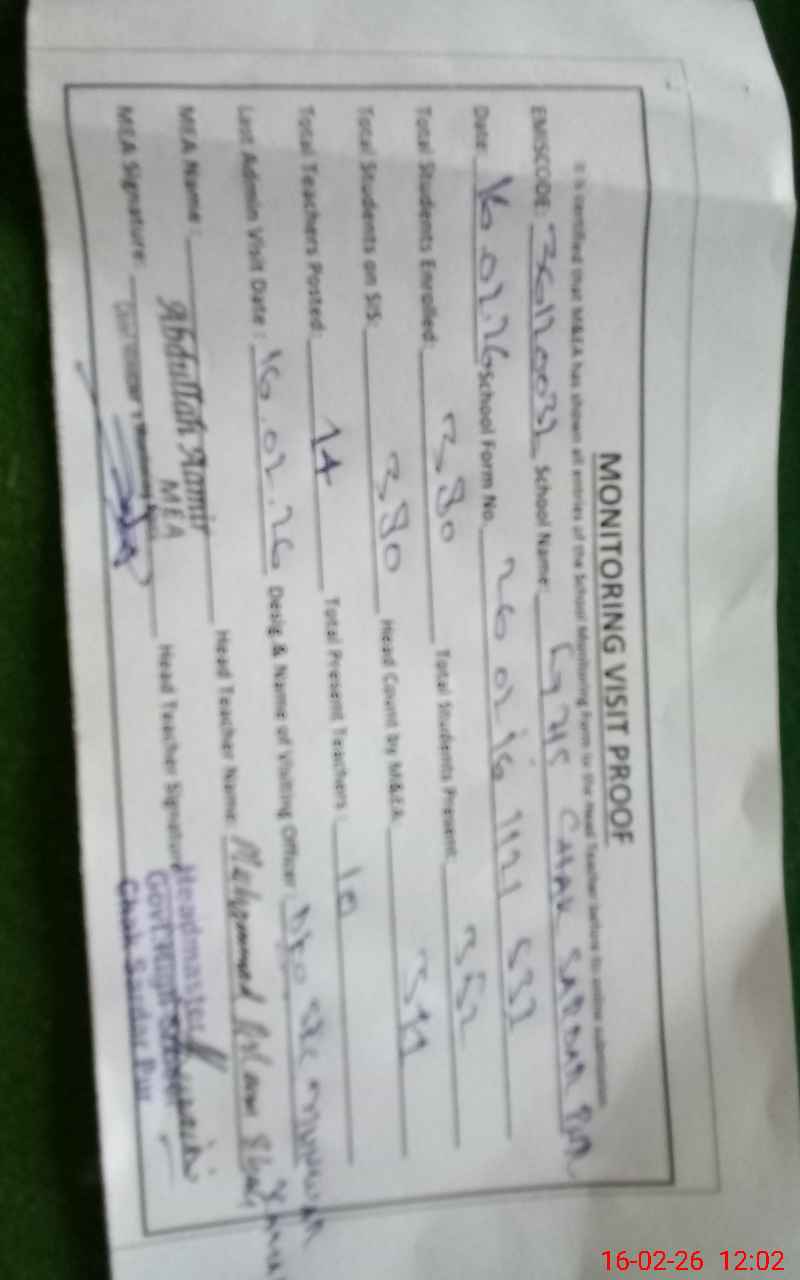 MONITORING VISIT PROOF
It is certified that M&EA has shown all entries of the School Monitoring Form to the Head Teacher before its online submission
EMISCODE: 36120032 School Name: GHS CHAK SARDAR PUR
Date: 16.02.26 School Form No. 26 02 16 1121 532
Total Students Enrolled: 380 Total Students Present: 352
Total Students on SIS: 380 Head Count by M&EA:
Total Teachers Posted: 14 Total Present Teachers: 10
Last Admin Visit Date: 16.02.26 Desig & Name of Visiting Officer
MEA Name: Abdullah Aamir Head Teacher Name: Muhammad
MEA
MEA Signature: Head Teacher Signature
Headmaster
Govt. High School
Chak Sardar Pur
16-02-26 12:02